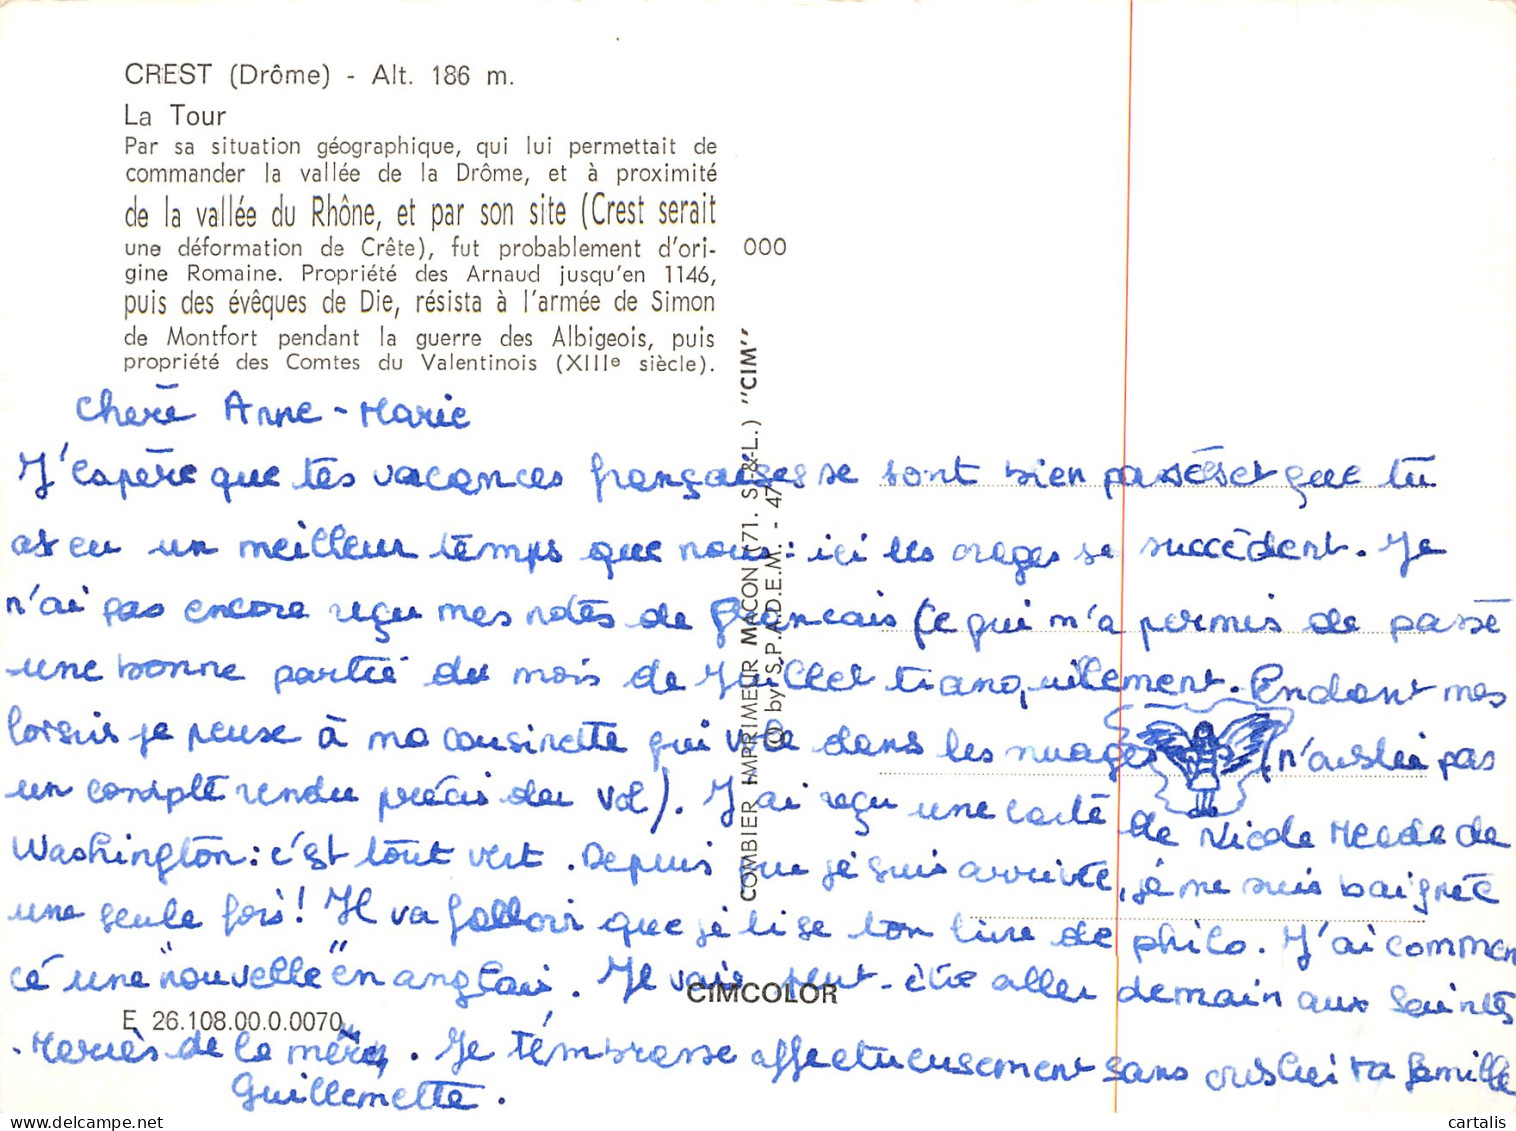 CREST (Drôme) - Alt. 186 m.
La Tour
Par sa situation géographique, qui lui permettait de
commander la vallée de la Drôme, et à proximité
de la vallée du Rhône, et par son site (Crest serait
une déformation de Crête), fut probablement d'ori-
gine Romaine. Propriété des Arnaud jusqu'en 1146,
puis des évêques de Die, résista à l'armée de Simon
de Montfort pendant la guerre des Albigeois, puis
propriété des Comtes du Valentinois (XIIIe siècle).
000
COMBIER IMPRIMEUR MACON (71. S.-&-L.) "CIM"
© by S.P.A.D.E.M. - 47
Chère Anne-Marie
J'espère que tes vacances françaises se sont bien passées et que tu
as eu un meilleur temps que nous : ici les orages se succèdent. Je
n'ai pas encore reçu mes notes de français ce qui m'a permis de passé
une bonne partie du mois de Juillet tranquillement. Pendant mes
loisirs je pense à ma cousinette qui vole dans les nuages (n'oublie pas
un compte rendu précis du vol). J'ai reçu une carte de Nicole Meede de
Washington : c'est tout vert. Depuis que je suis arrivée, je me suis baignée
une seule fois ! Il va falloir que je lise ton livre de philo. J'ai commen
cé une "nouvelle" en anglais. Je vais peut-être aller demain aux Saintes
Maries de la mer. Je t'embrasse affectueusement sans oublier ta famille
Guillemette.
CIMCOLOR
E 26.108.00.0.0070
cartalis